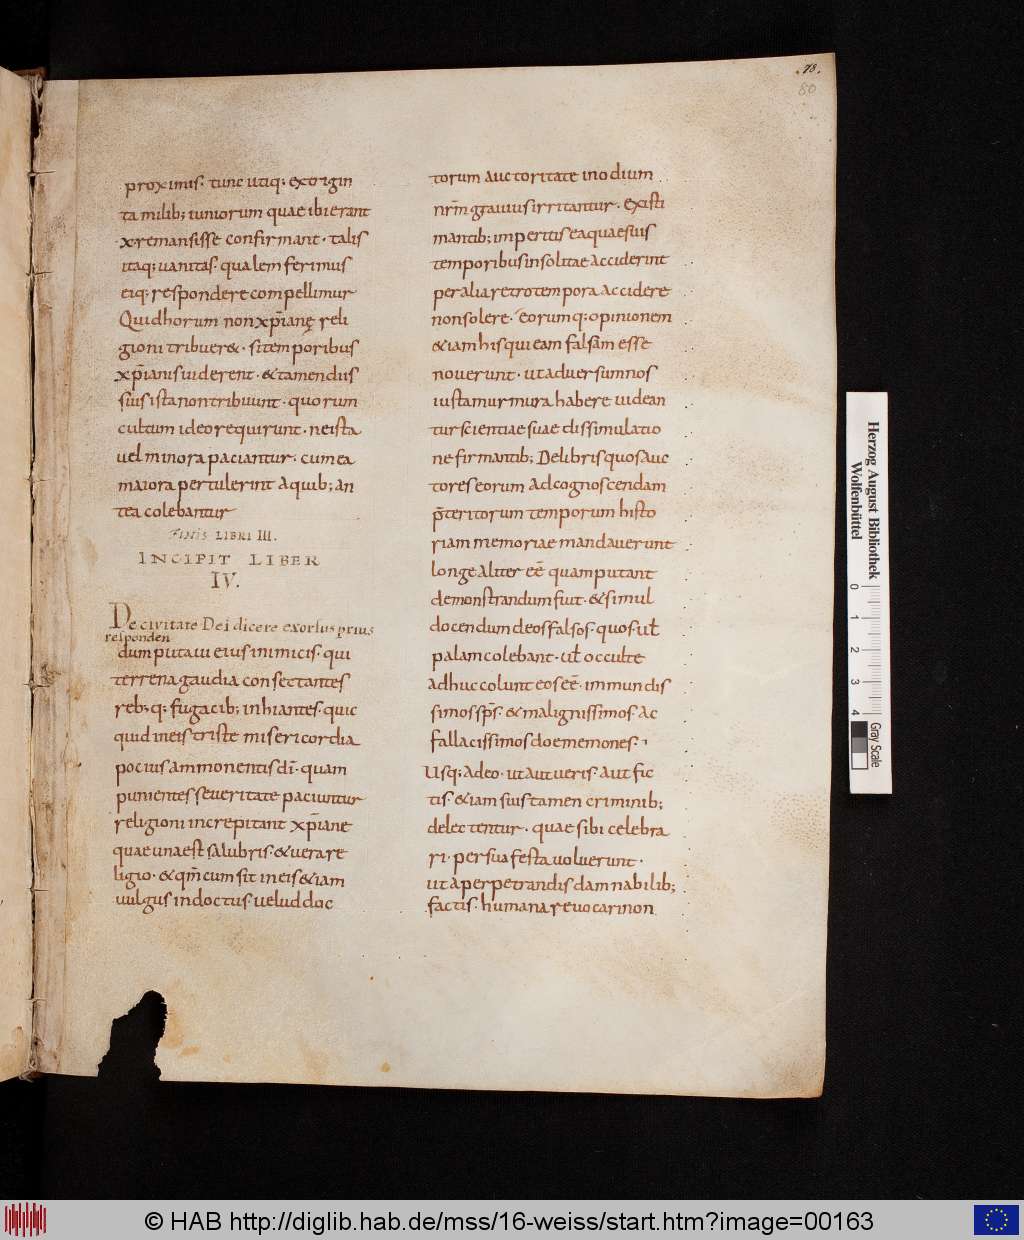 .78.
80
proximis· tunc utiq; ex trigin
ta milib; iuniorum quae ibi erant
·x· remansisse confirmant· talis
itaq; uanitas· qualem ferimus
eiq; respondere compellimur
Quid horum non xp̄ianę reli
gioni tribuer&· si temporibus
xp̄ianis uiderent· & tamen diis
suis ista non tribuunt· quorum
cultum ideo requirunt· ne ista
uel minora paciantur· cum ea
maiora pertulerint a quib; an
tea colebantur
FINIS LIBRI III.
INCIPIT LIBER
IV.
De civitate Dei dicere exorsus prius
responden
dum putaui eius inimicis· qui
terrena gaudia consectantes
reb;q; fugacib; inhiantes· quic
quid in eis triste misericordia
pocius ammonentis dī· quam
punientis seueritate paciuntur
religioni increpitant xp̄iane
quae una est salubris· & uera re
ligio· & qm̄ cum sit in eis & iam
uulgus indoctus· uelud doc
torum auctoritate in odium
nr̄m grauius irritantur· existi
mantib; imperitis ea quae suis
temporibus insolitae acciderint
per alia retro tempora accidere
non solere· eorumq; opinionem
& iam his qui eam falsam esse
nouerunt· ut aduersum nos
iusta murmura habere uidean
tur scientiae suae dissimulatio
ne firmantib; De libris quos auc
tores eorum ad cognoscendam
p̄teritorum temporum histo
riam memoriae mandauerunt
longe aliter eē quam putant
demonstrandum fuit· & simul
docendum deos falsos· quos· ul̄
palam colebant· ul̄ occulte
adhuc colunt eos eē· immundis
simos sp̄s· & malignissimos· ac
fallacissimos doememones·
Usq; adeo· ut aut ueris· aut fic
tis· & iam suis tamen criminib;
delectentur· quae sibi celebra
ri· per sua festa uoluerunt·
ut a perpetrandis damnabilib;
factis· humana reuocari non
Herzog August Bibliothek
Wolfenbüttel
0 1 2 3 4
Gray Scale
© HAB http://diglib.hab.de/mss/16-weiss/start.htm?image=00163